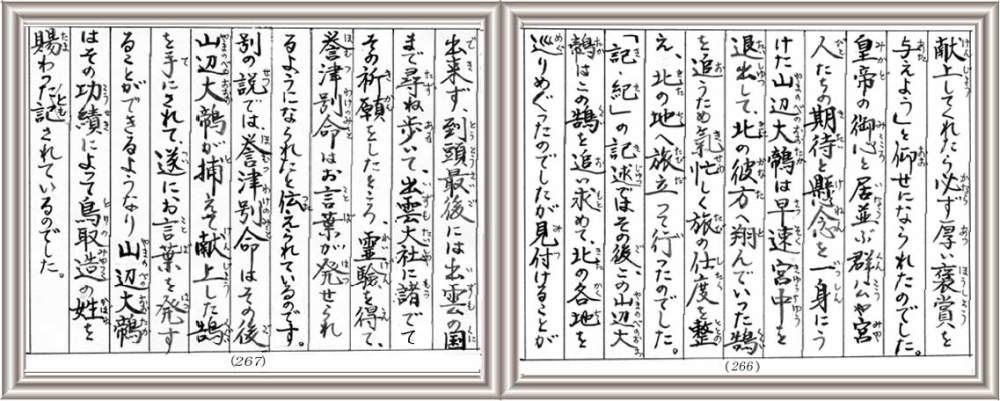 献上してくれたら必ず厚い褒賞を
与えよう」と仰せになられたのでした。
皇帝の御心と居並ぶ群公や宮
人たちの期待と懸念を一身にう
けた山辺大鶙は早速宮中を
退出して、北の彼方へ翔んでいった鵠
を追うため気忙しく旅の仕度を整
え、北の地へ旅立って行ったのでした。
「記・紀」の記述ではその後この山辺大
鶙はこの鵠を追い求めて、北の各地を
巡りめぐったのでしたが見付けることが
(266)
出来ず、到頭最後には出雲の国
まで尋ね歩いて、出雲大社に諸でて
その祈願をしたところ、霊験を得て、
誉津別命はお言葉が発せられ
るようになられたと伝えられているのです。
別の説では、誉津別命はその後
山辺大鶙が捕えて献上した鵠
を手にされて遂にお言葉を発す
ることができるようなり山辺大鶙
はその功績によって鳥取造の姓を
賜わった記されているのでした。
(267)